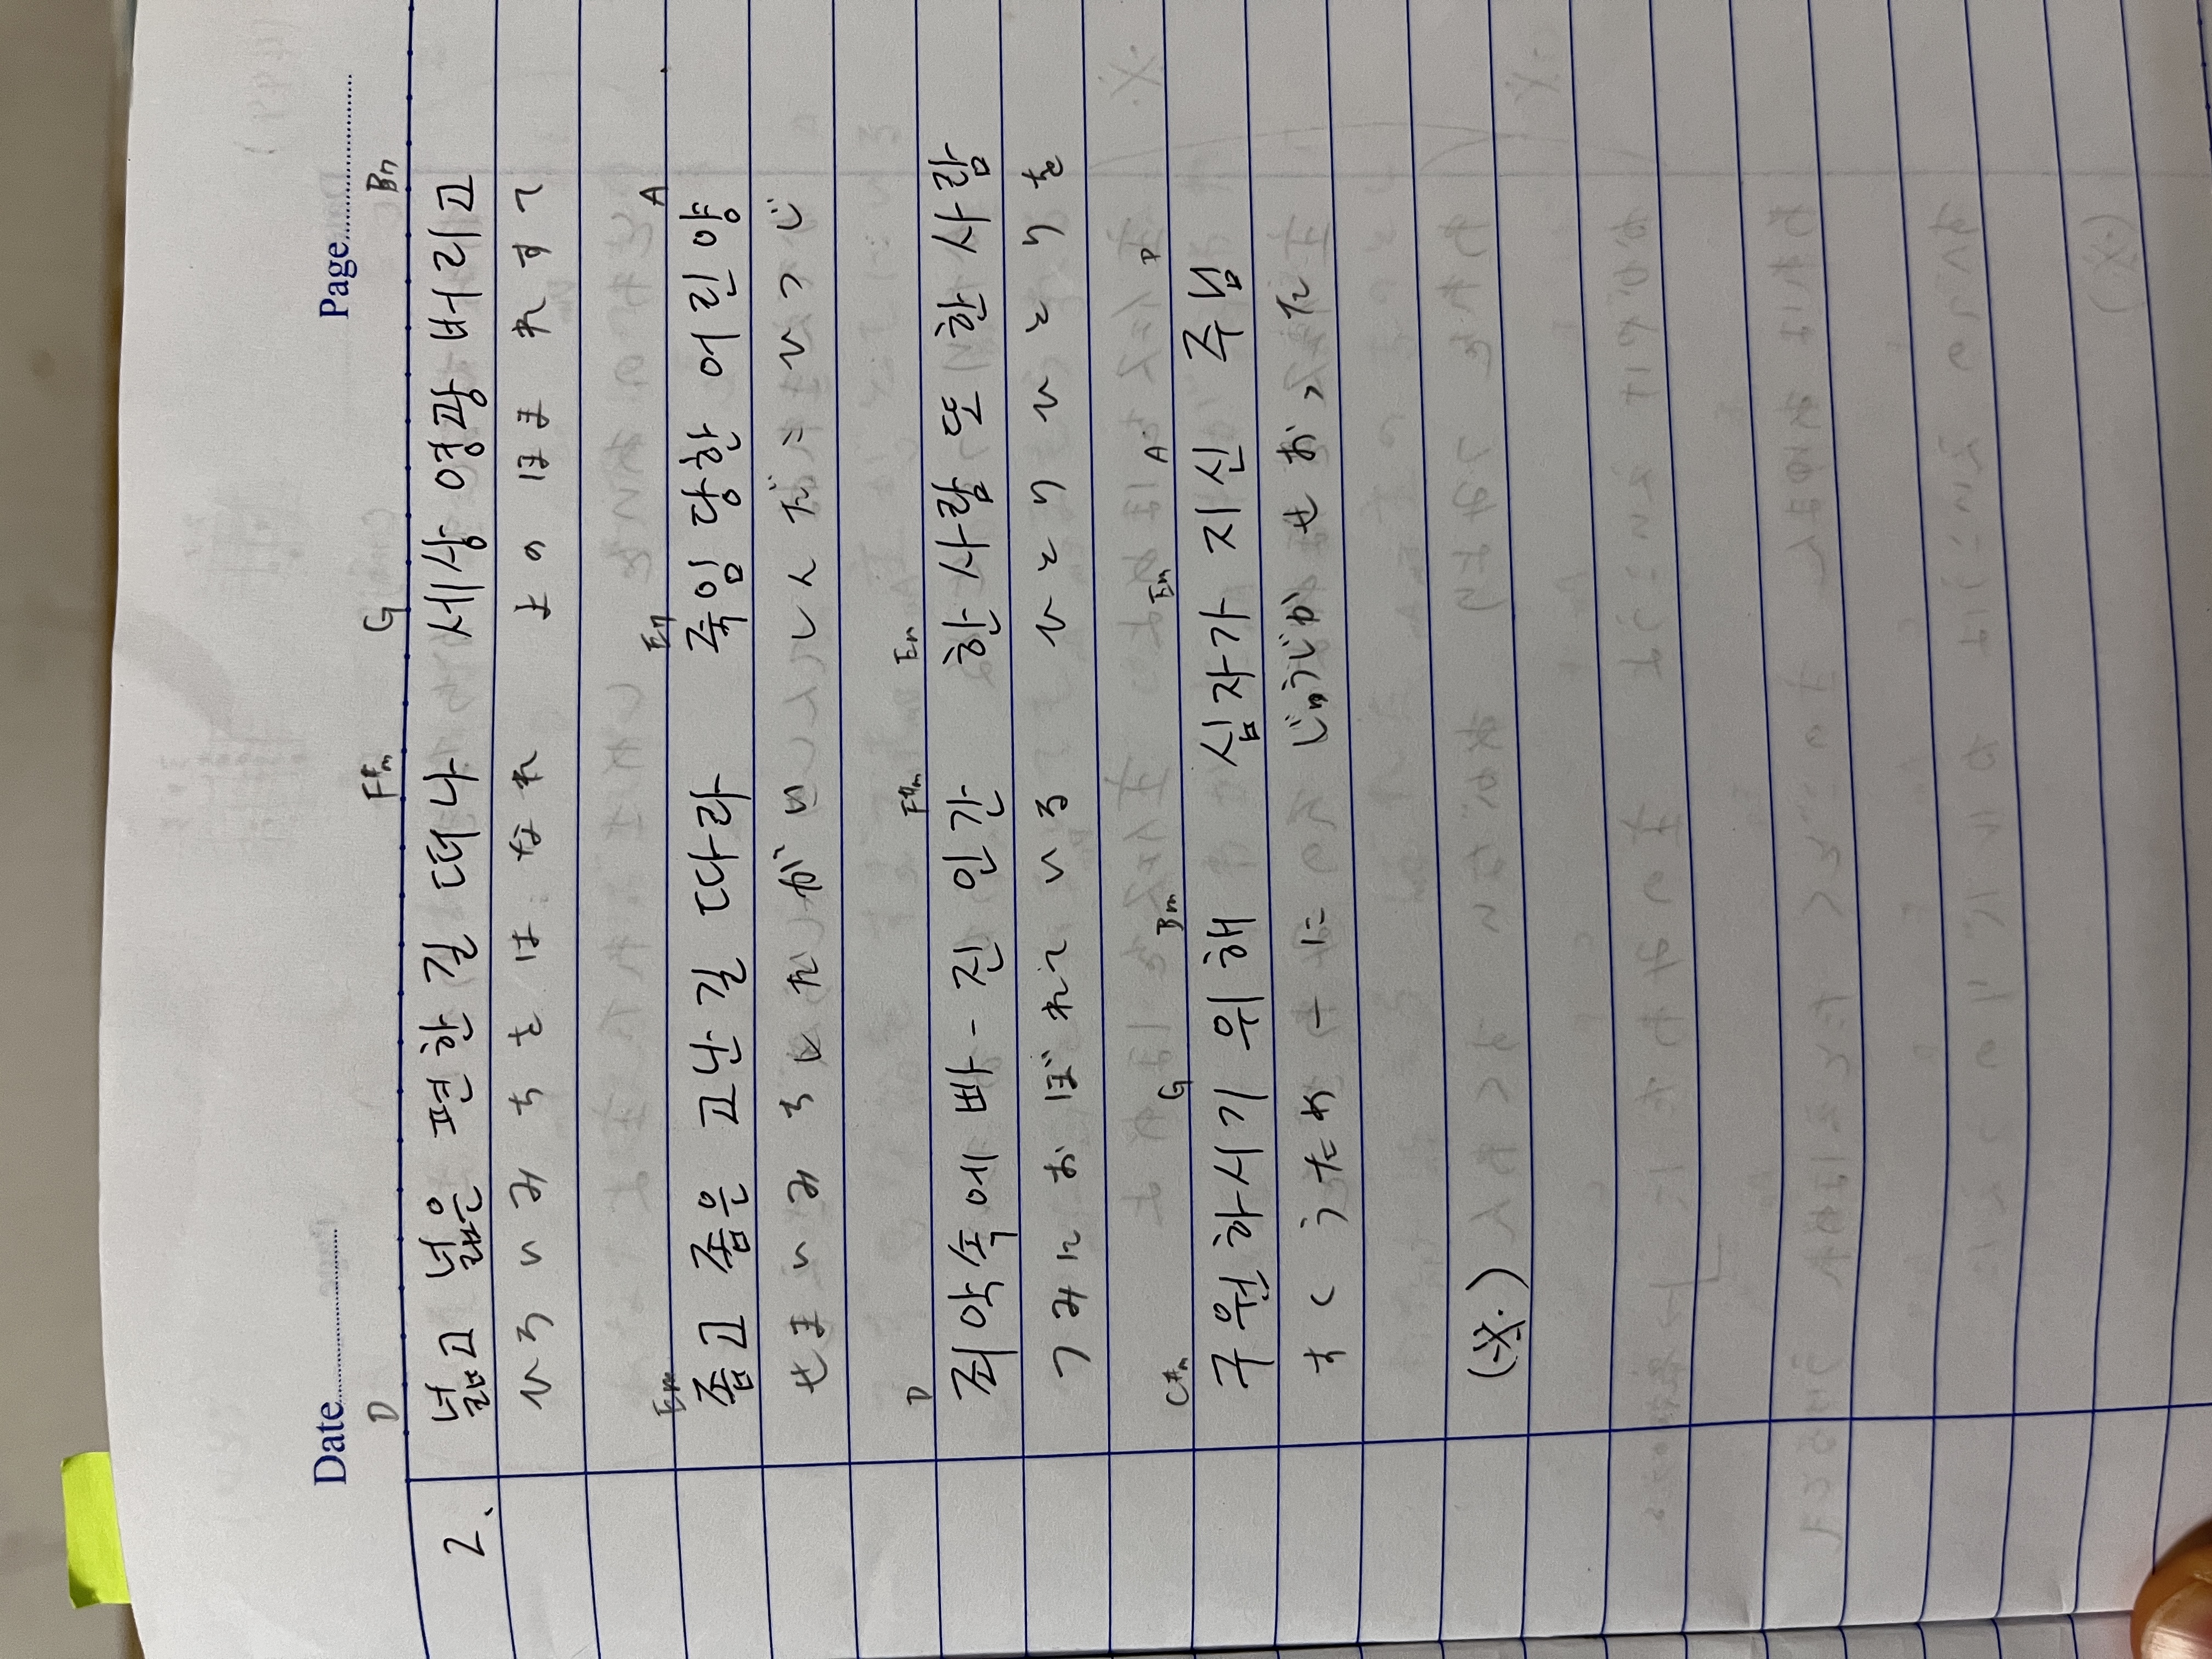 Date
Page
D F#m G Bm
2. 넓고 넓은 편한 길 떠나 세상 영광 버리고
ひろいみちをはなれ よのほまれすて
Em Em A
좁고 좁은 고난 길 따라 죽임 당한 어린 양
せまいみちにたがい しんだこひつじ
D F#m Em
죄악속에 빠-진 인간 한 사람 또 한 사람
つみにおぼれている ひとりひとりを
C#m G Bm Em A D
구원하시기 위해 십자가 지신 주님
すくうために じゅうじかせおった
(※)